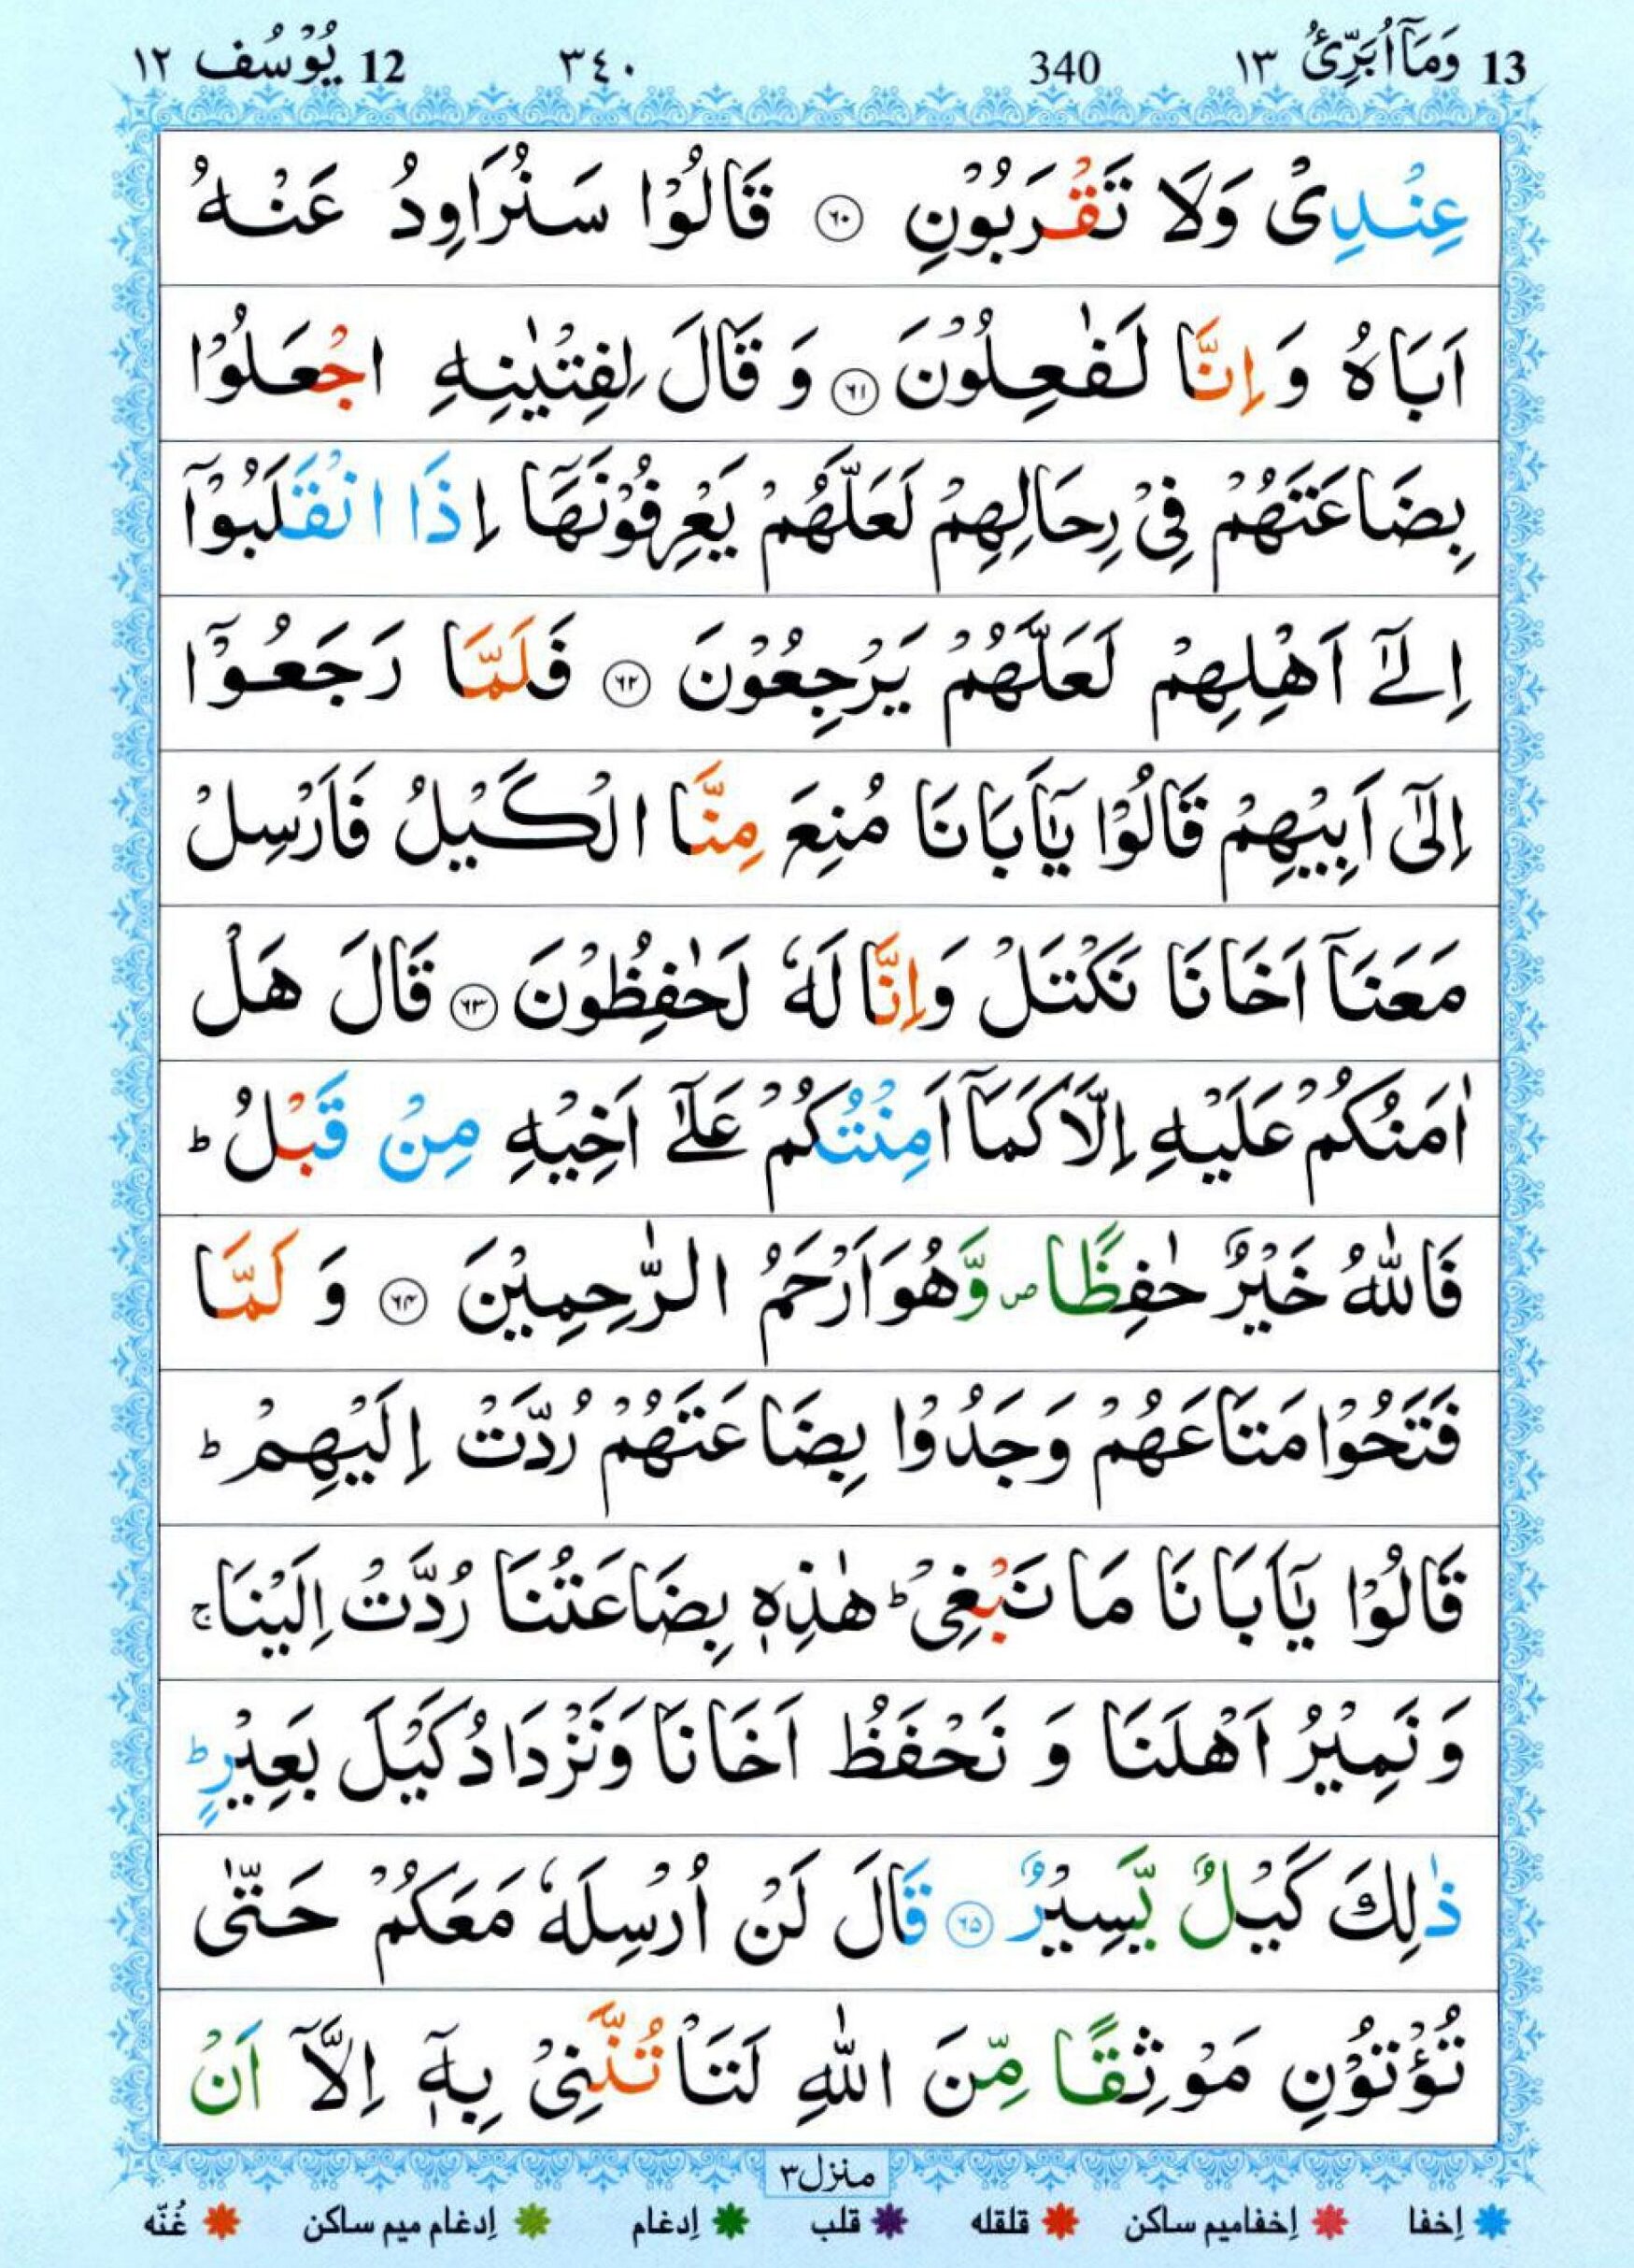 13 وَمَاۤ اُبَرِّئُ ١٣ 340 ٣٤٠ 12 يُوْسُف ١٢
عِنْدِىْ وَلَا تَقْرَبُوْنِ ۝٦٠ قَالُوْا سَنُرَاوِدُ عَنْهُ
اَبَاهُ وَ اِنَّا لَفٰعِلُوْنَ ۝٦١ وَ قَالَ لِفِتْيٰنِهِ اجْعَلُوْا
بِضَاعَتَهُمْ فِىْ رِحَالِهِمْ لَعَلَّهُمْ يَعْرِفُوْنَهَاۤ اِذَا انْقَلَبُوْۤا
اِلٰٓى اَهْلِهِمْ لَعَلَّهُمْ يَرْجِعُوْنَ ۝٦٢ فَلَمَّا رَجَعُوْۤا
اِلٰٓى اَبِيْهِمْ قَالُوْا يٰۤاَبَانَا مُنِعَ مِنَّا الْكَيْلُ فَاَرْسِلْ
مَعَنَاۤ اَخَانَا نَكْتَلْ وَاِنَّا لَهٗ لَحٰفِظُوْنَ ۝٦٣ قَالَ هَلْ
اٰمَنُكُمْ عَلَيْهِ اِلَّا كَمَاۤ اَمِنْتُكُمْ عَلٰٓى اَخِيْهِ مِنْ قَبْلُ ؕ
فَاللّٰهُ خَيْرٌ حٰفِظًا ۪ وَّهُوَ اَرْحَمُ الرّٰحِمِيْنَ ۝٦٤ وَ لَمَّا
فَتَحُوْا مَتَاعَهُمْ وَجَدُوْا بِضَاعَتَهُمْ رُدَّتْ اِلَيْهِمْ ؕ
قَالُوْا يٰۤاَبَانَا مَا نَبْغِىْ ؕ هٰذِهٖ بِضَاعَتُنَا رُدَّتْ اِلَيْنَا ۚ
وَنَمِيْرُ اَهْلَنَا وَ نَحْفَظُ اَخَانَا وَنَزْدَادُ كَيْلَ بَعِيْرٍ ؕ
ذٰلِكَ كَيْلٌ يَّسِيْرٌ ۝٦٥ قَالَ لَنْ اُرْسِلَهٗ مَعَكُمْ حَتّٰى
تُؤْتُوْنِ مَوْثِقًا مِّنَ اللّٰهِ لَتَاْتُنَّنِىْ بِهٖۤ اِلَّاۤ اَنْ
منزل٣
اِخفا اِخفامیم ساکن قلقله قلب اِدغام اِدغام میم ساکن غُنّه